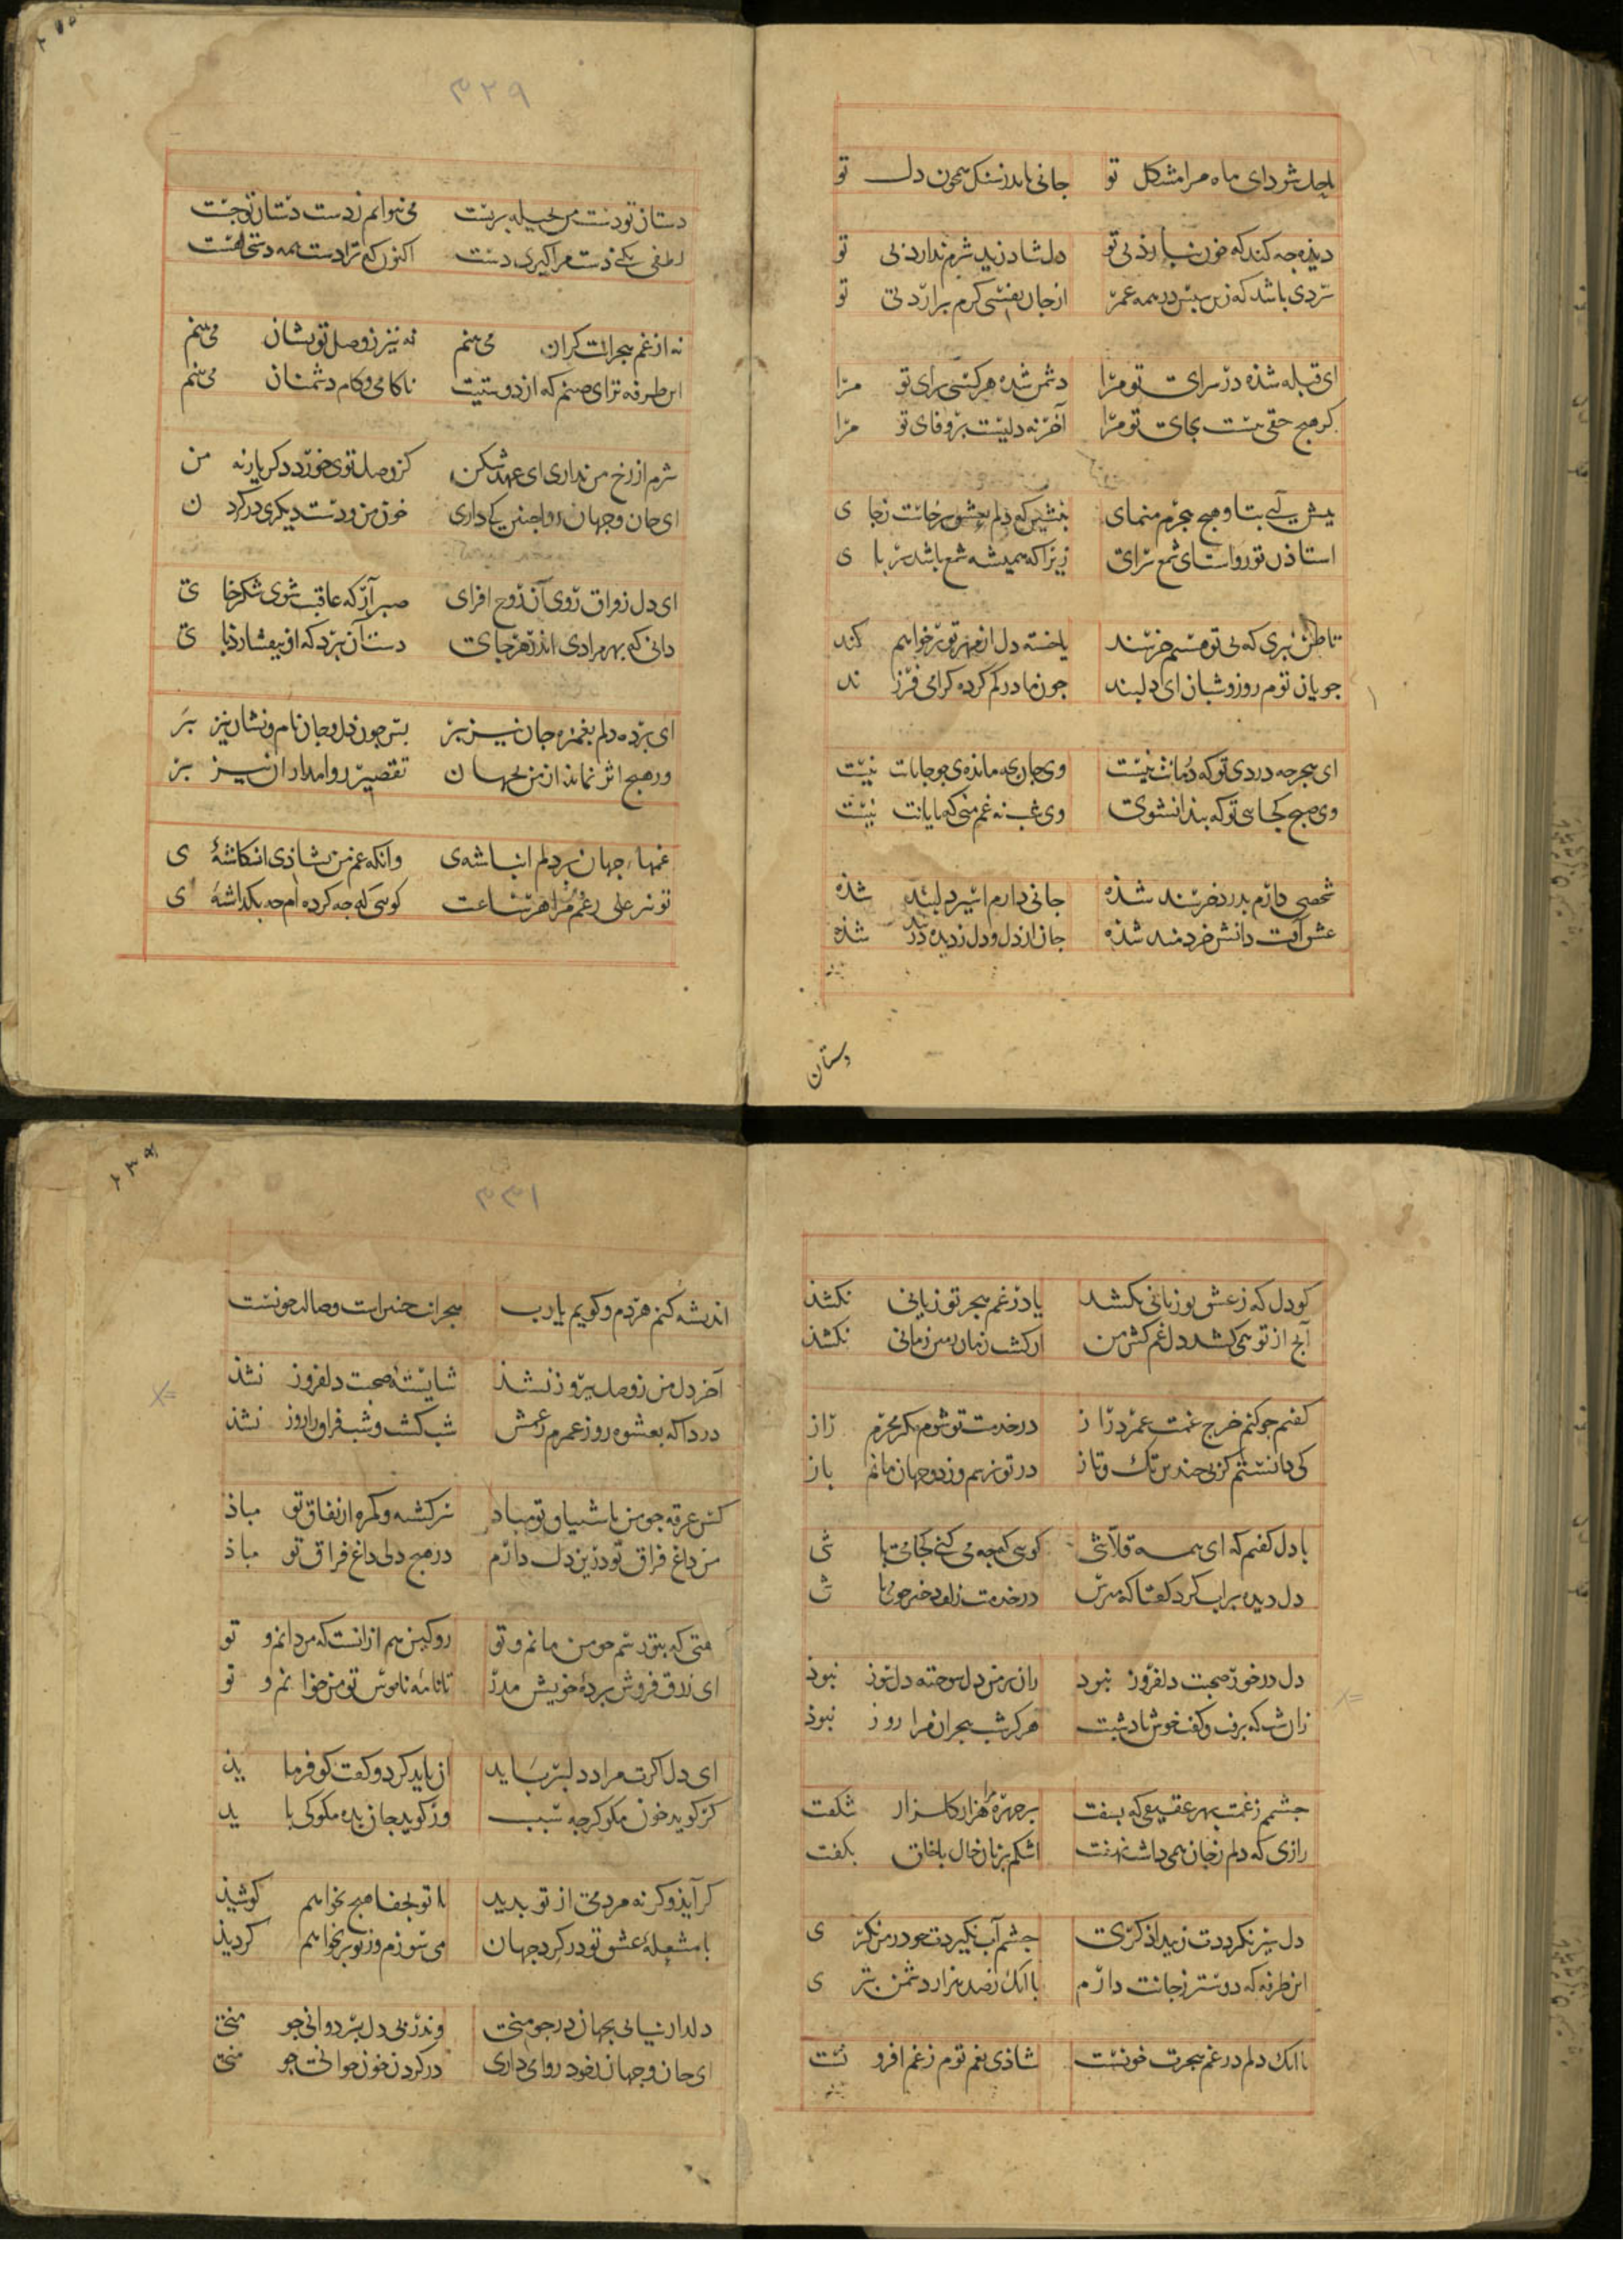 تو جانی ماند سنگ همچون دل تو
دیذه جه کند که خون نبارذ بی تو دل شاد زید شرم ندارد بی تو
سردی باشد که زین سپس در همه عمر از جان نفسی کرم برارد بی تو
ای قبله شذه در سرای تو مرا دشمن شده هر کسی برای تو مرا
کر هیج حقی نیست بجای تو مرا آخر نه دلیست بر وفای تو مرا
پیش آی بتا و هیج جرم منمای بنشین که دلم بعشق برخاست ز جای
استاذن تو رواست ای شمع سرای زیرا که همیشه شمع باشد بر پای
تا ظن نبری که بی توم خرسند یا خسته دل از مهر تو بر خواهم کند
جویان توم روز و شبان ای دلبند جون مادر کم کرده کرامی فرزند
ای هجر جه دردی تو که درمانت نیست وی جان جه مانده‌ی جو جانانت نیست
وی صبح کجایی تو که پیدا نشوی وی شب نه غم منی که پایانت نیست
شخصی دارم بدرد خرسند شذه جانی دارم اسیر دلبند شذه
دانش خردمند شذه جان از دل و دل ز دیده در شذه
دستان
۳۲۹
دستان تو دست من بحیله بربست می نتوانم ز دست دستان تو جست
لطفی بکن و دست مرا کیر بدست اکنون که ترا دست همه دستی هست
نه از غم هجرانت کران می بینم نه نیز ز وصل تو نشان می بینم
این طرفه ترای صنم که از دوستیت ناکامی و کام دشمنان می بینم
شرم از رخ من نداری ای عهد شکن کز وصل توی خورد دکر یار نه من
ای جان و جهان روا جنین کی داری خون من و دست دیکری در کردن
ای دل ز فراق روی آن روح افزای صبر آر که عاقبت شوی شکر خای
دانی که بهر مرادی اندر هر جای دست آن برد که او بیفشارد پای
ای برده دلم بغمزه جان نیز ببر بس چون دل و جان نام و نشان نیز ببر
ور هیج اثر نماند از من بجهان تقصیر روا مدار آن نیز ببر
غمهاء جهان بر دلم انباشته‌ی وانکه غم من بشاذی انکاشته‌ی
تو نیز علی رغم مرا هر ساعت کویی که جه کرده‌ام جه بکذاشته‌ی
کو دل که ز عشق تو زیانی نکشد یا درغم هجر تو زبانی نکشذ
آنج از تو همی کشد دل غم کش من
کفتم جو کنم خرج غمت عمر دراز در خدمت تو شوم مکر محرم راز
کی دانستم کزین جندین تک و تاز در تو نرسم وز دو جهان مانم باز
با دل کفتم که ای همه قلاشی کویی که جه می کنی کجا می باشی
دل دیده پر آب کرد کفتا که مپرس در خدمت زلف
دل در خور صحبت دلفروز نبود زان بر من دل سوخته دلسوز نبوذ
زان شب که برفت و کفت خوش بادشبت هرکز شب هجران مرا روز نبوذ
جشمم ز غمت بهر عقیقی که بسفت بر جهره هزار کلزار شکفت
رازی که دلم ز جان همی داشت نهفت اشکم بزبان حال با خلق بکفت
دل سیر نکرددت ز بیدادکری جشم آب نکیردت جو در من نکری
این طرفه که دوستر ز جانت دارم با آنک ز صد هزار دشمن بتری
با آنک دلم در غم هجرت خونست شاذی بغم توم ز غم افزونست
۳۳۱
اندیشه کنم هر دم و کویم یا رب هجرانت جنین است وصالت جونست
آخر دل من ز وصل پیروز نشذ شایسته صحبت دلفروز نشذ
دردا که بعشوه روز عمرم ز غمش شب کشت و شب فراق را روز نشذ
کس غرقه جو من تو مباد سرکشته و کمره از نفاق تو مباذ
من داغ فراق تو درین دل دارم در هیج دلی داغ فراق تو مباذ
رو کین هم از آنست که من دانم و تو
ای زرق فروش پرده خویش مدر تا نامه ناموس تو من خوانم و تو
ای دل اکرت مراد دلبر باید آن باید کرد و کفت کو فرماید
کر کوید خون مکو کز جه سبب ور کوید جان بده مکو کی باید
کر آید و کر نه مردمی از تو پدید با تو بجفا هیج نخواهم کوشیذ
با مشعله عشق تو در کرد جهان می سوزم وز تو بر نخواهم کردیذ
دلدار نیابی بجهان در جو منی وندر پی دل بر دوانی جو منی
ای جان و جهان ز خود روا می داری در کردن خون جوانی جو منی